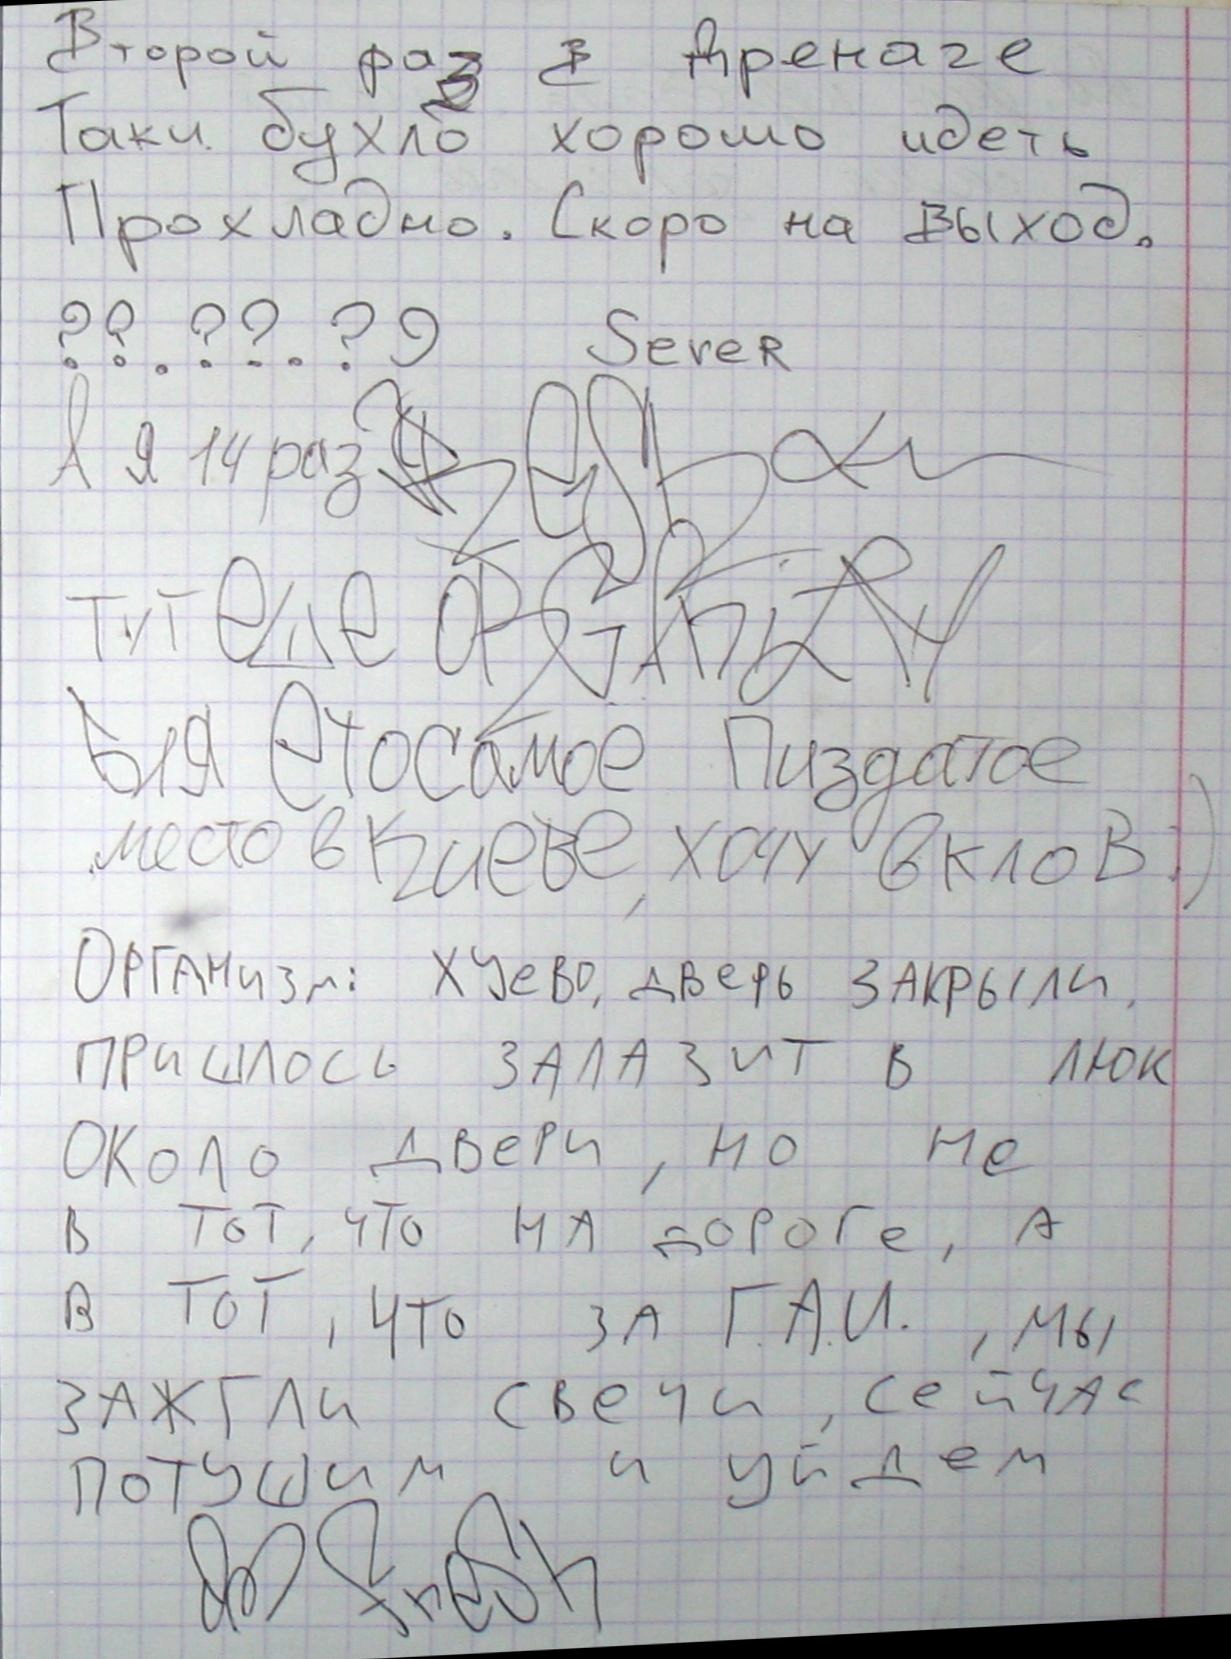 Второй раз в Дренаге
Таки бухло хорошо идеть
Прохладно. Скоро на выход.
??.??.?9 Sever
А я 14 раз
тут еще
ЫЯ етосамое Пиздатое
место в Киеве, хочу в клов :)
Организм: хуево, дверь закрыли.
пришлось залазит в люк
около двери, но не
в тот, что на дороге, а
в тот, что за Г.А.И. , мы
зажгли свечи, сейчас
потушим и уйдем
Fresh